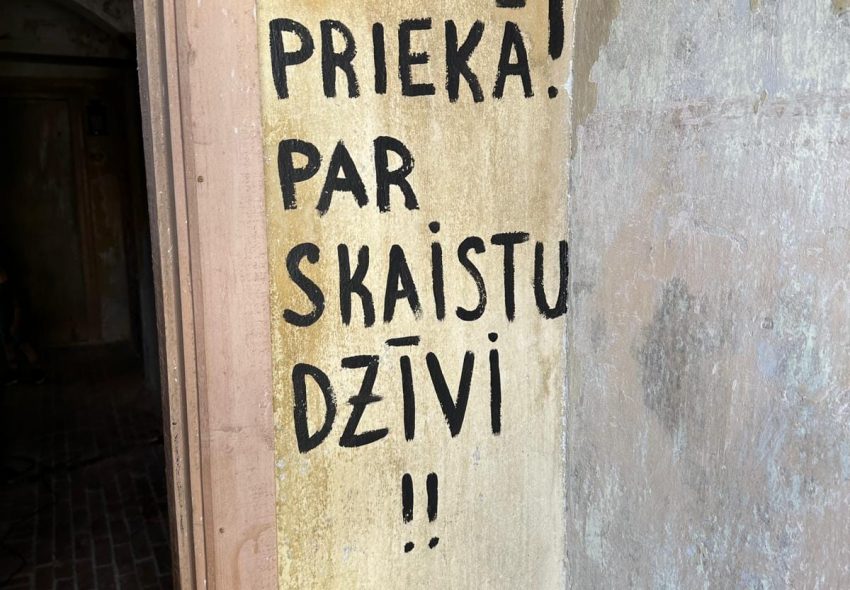 PRIEKĀ!
PAR
SKAiSTU
DZĪVi
!!